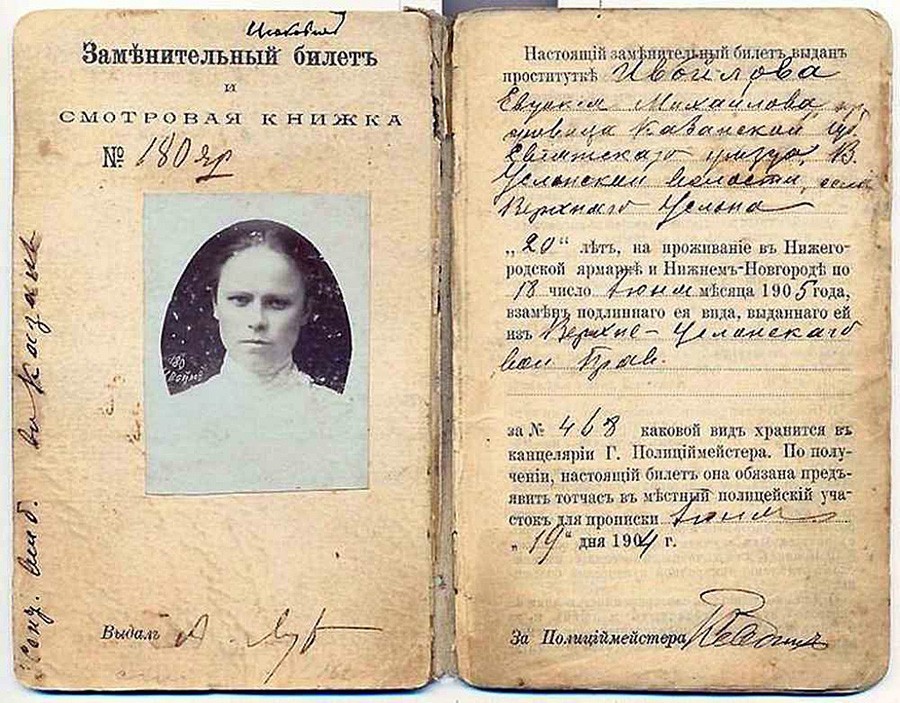 Замѣнительный билетъ
и
СМОТРОВАЯ КНИЖКА
№ 180 яр
180
Выдалъ А.
въ Казань
Настоящій замѣнительный билетъ выданъ
проституткѣ
Михайлова
Казанской губ.
уѣзда, В.
Услонской волости, села
Верхняго Услона
„20“ лѣтъ, на проживаніе въ Нижего-
родской ярмаркѣ и Нижнемъ-Новгородѣ по
18 число Іюня мѣсяца 1905 года,
взамѣнъ подлиннаго ея вида, выданнаго ей
изъ Верхне-Услонскаго
вол Прав.
за № 468 каковой видъ хранится въ
канцеляріи Г. Полиціймейстера. По полу-
ченіи, настоящій билетъ она обязана предъ-
явить тотчасъ въ мѣстный полицейскій уча-
стокъ для прописки Іюня
„19“ дня 1904 г.
За Полиціймейстера